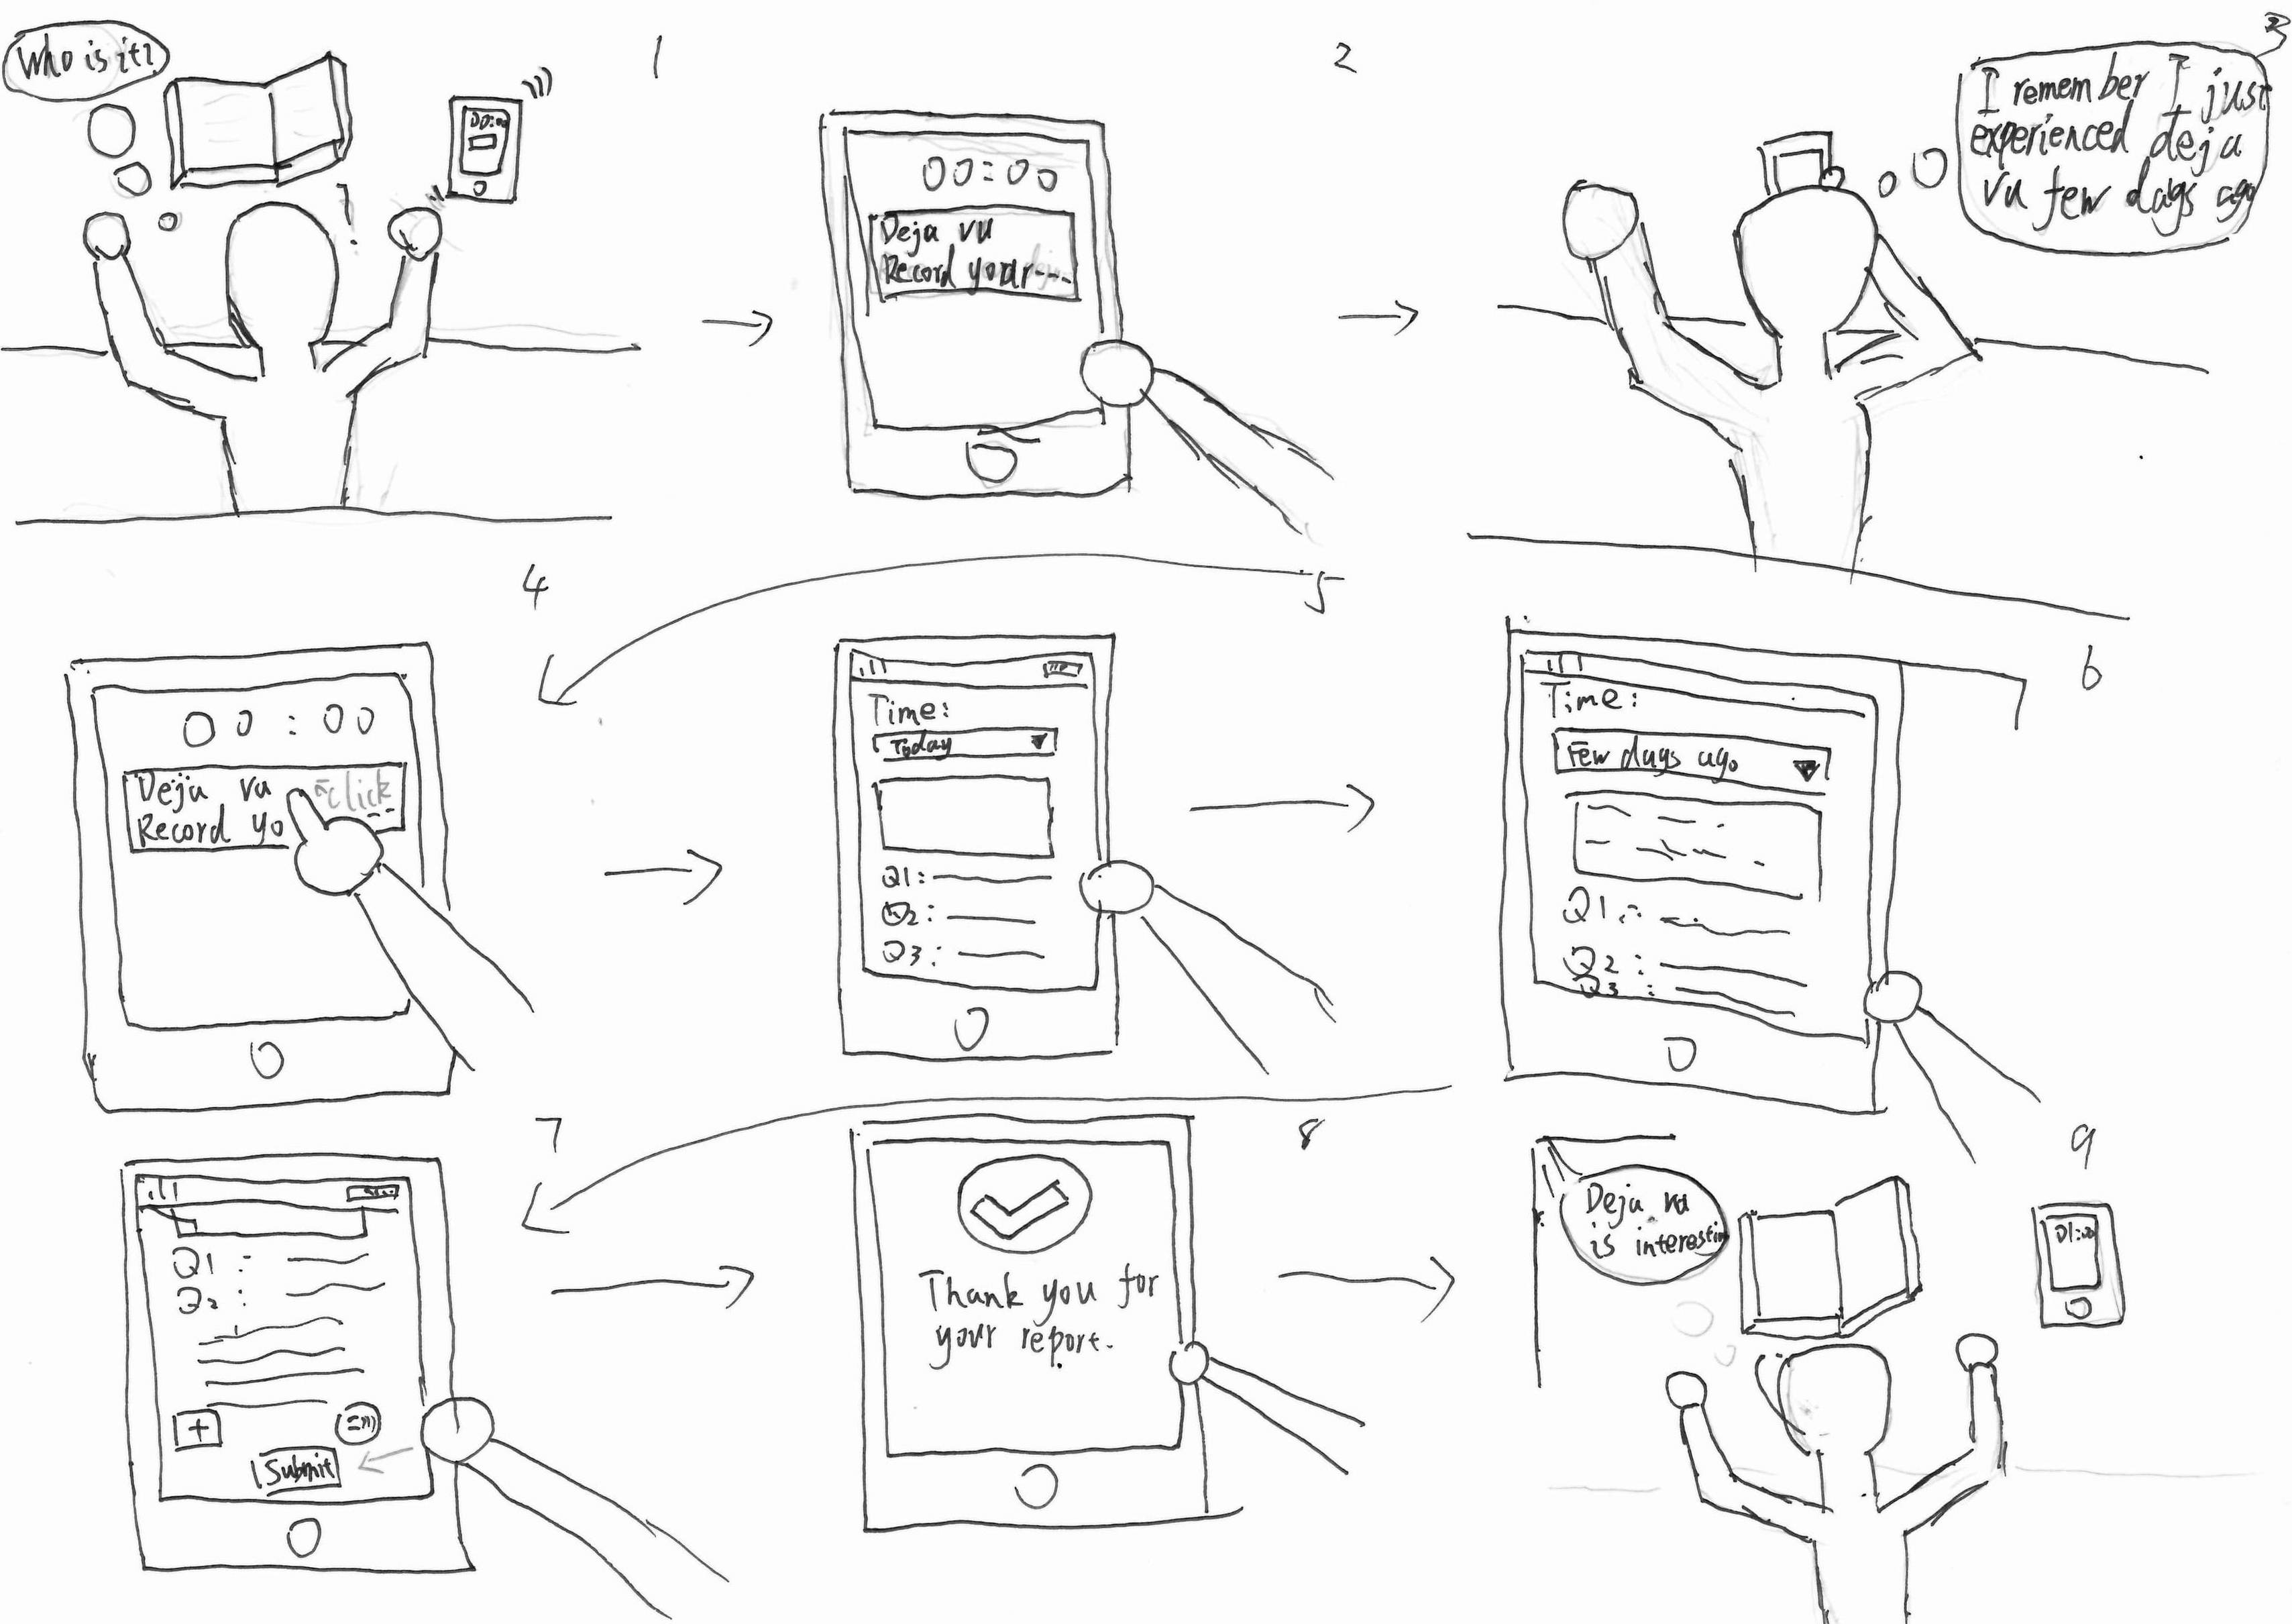 1
Who is it?
00:00
2
00:00
Deja vu
Record your---
3
I remember I just
experienced deja
vu few days ago
4
00:00
Deja vu click
Record yo
5
Time:
Today
Q1:
Q2:
Q3:
6
Time:
Few days ago
Q1:
Q2:
Q3:
7
Q1:
Q2:
+
Submit
8
Thank you for
your report.
9
Deja vu
is interestin
01:00